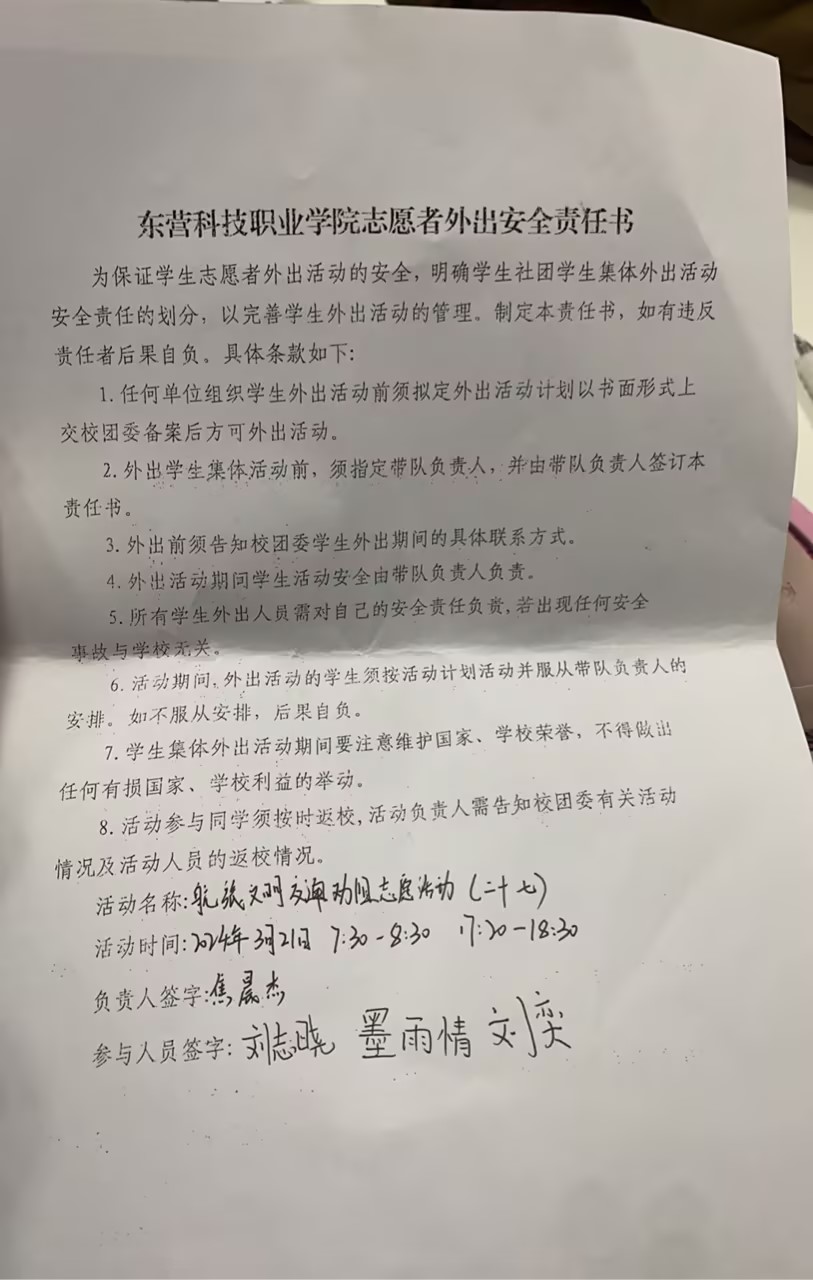 东营科技职业学院志愿者外出安全责任书
为保证学生志愿者外出活动的安全，明确学生社团学生集体外出活动
安全责任的划分，以完善学生外出活动的管理。制定本责任书，如有违反
责任者后果自负。具体条款如下：
1. 任何单位组织学生外出活动前须拟定外出活动计划以书面形式上
交校团委备案后方可外出活动。
2. 外出学生集体活动前，须指定带队负责人，并由带队负责人签订本
责任书。
3. 外出前须告知校团委学生外出期间的具体联系方式。
4. 外出活动期间学生活动安全由带队负责人负责。
5. 所有学生外出人员需对自己的安全责任负责,若出现任何安全
事故与学校无关。
6. 活动期间,外出活动的学生须按活动计划活动并服从带队负责人的
安排。如不服从安排，后果自负。
7. 学生集体外出活动期间要注意维护国家、学校荣誉，不得做出
任何有损国家、学校利益的举动。
8. 活动参与同学须按时返校,活动负责人需告知校团委有关活动
情况及活动人员的返校情况。
活动名称:文明交通劝阻志愿活动（二十七）
活动时间:2024年3月21日 7:30-8:30 17:30-18:30
负责人签字:焦晨杰
参与人员签字: 刘志晓 墨雨情 刘奕